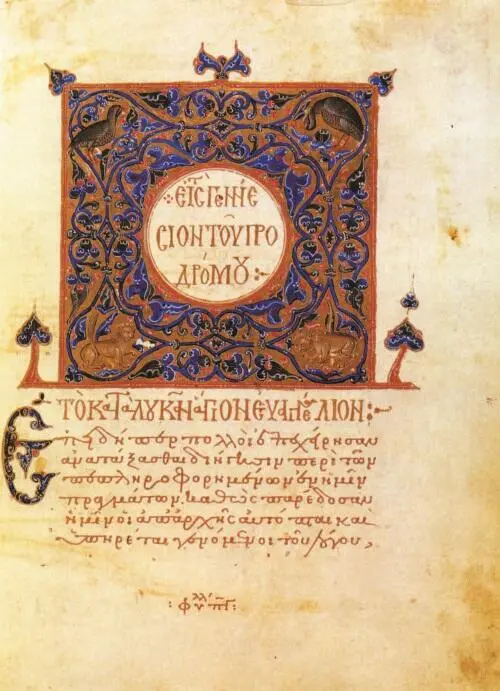 ΕΙΣ ΓΕΝΝΕ
ΣΙΟΝ ΤΟΥ ΠΡΟ
ΔΡΟΜΟΥ
ΤΟ ΚΑΤΑ ΛΥΚΑΝ ΑΓΙΟΝ ΕΥΑΓΓΕΛΙΟΝ
Ἐπειδήπερ πολλοὶ ἐπεχείρησαν
ἀνατάξασθαι διήγησιν περὶ τῶν
πεπληροφορημένων ἐν ἡμῖν
πραγμάτων, καθὼς παρέδοσαν
ἡμῖν οἱ ἀπ' ἀρχῆς αὐτόπται καὶ
ὑπηρέται γενόμενοι τοῦ λόγου,